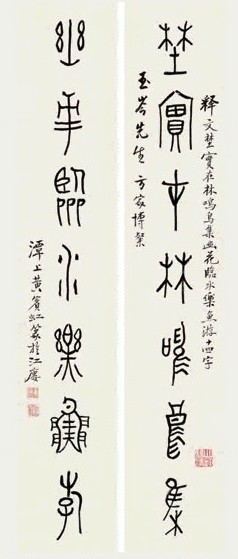 釋文埜實在林鳴鳥集幽花臨水樂魚游十四字
埜實在林鳴鳥集
玉岑先生方家博粲
幽花臨水樂魚游
潭上黃賓虹篆於江廔